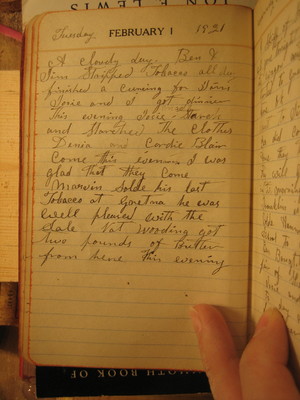 ON E LEWIS
Tuesday FEBRUARY 1 1921
A cloudy day. Ben &
Jim Stripped Tobacco all day
finished a curing for Davis
Josie and I got dinner
This evening Josie
and Starched The Clothes
Denia and Cordie Blair
Come this evening I was
glad that they come
Marvin Solde his last
Tobacco at Gretna he was
well pleased with the
Sale Nat Wooding got
two pounds of butter
from here this evening
MOTH BOOK OF